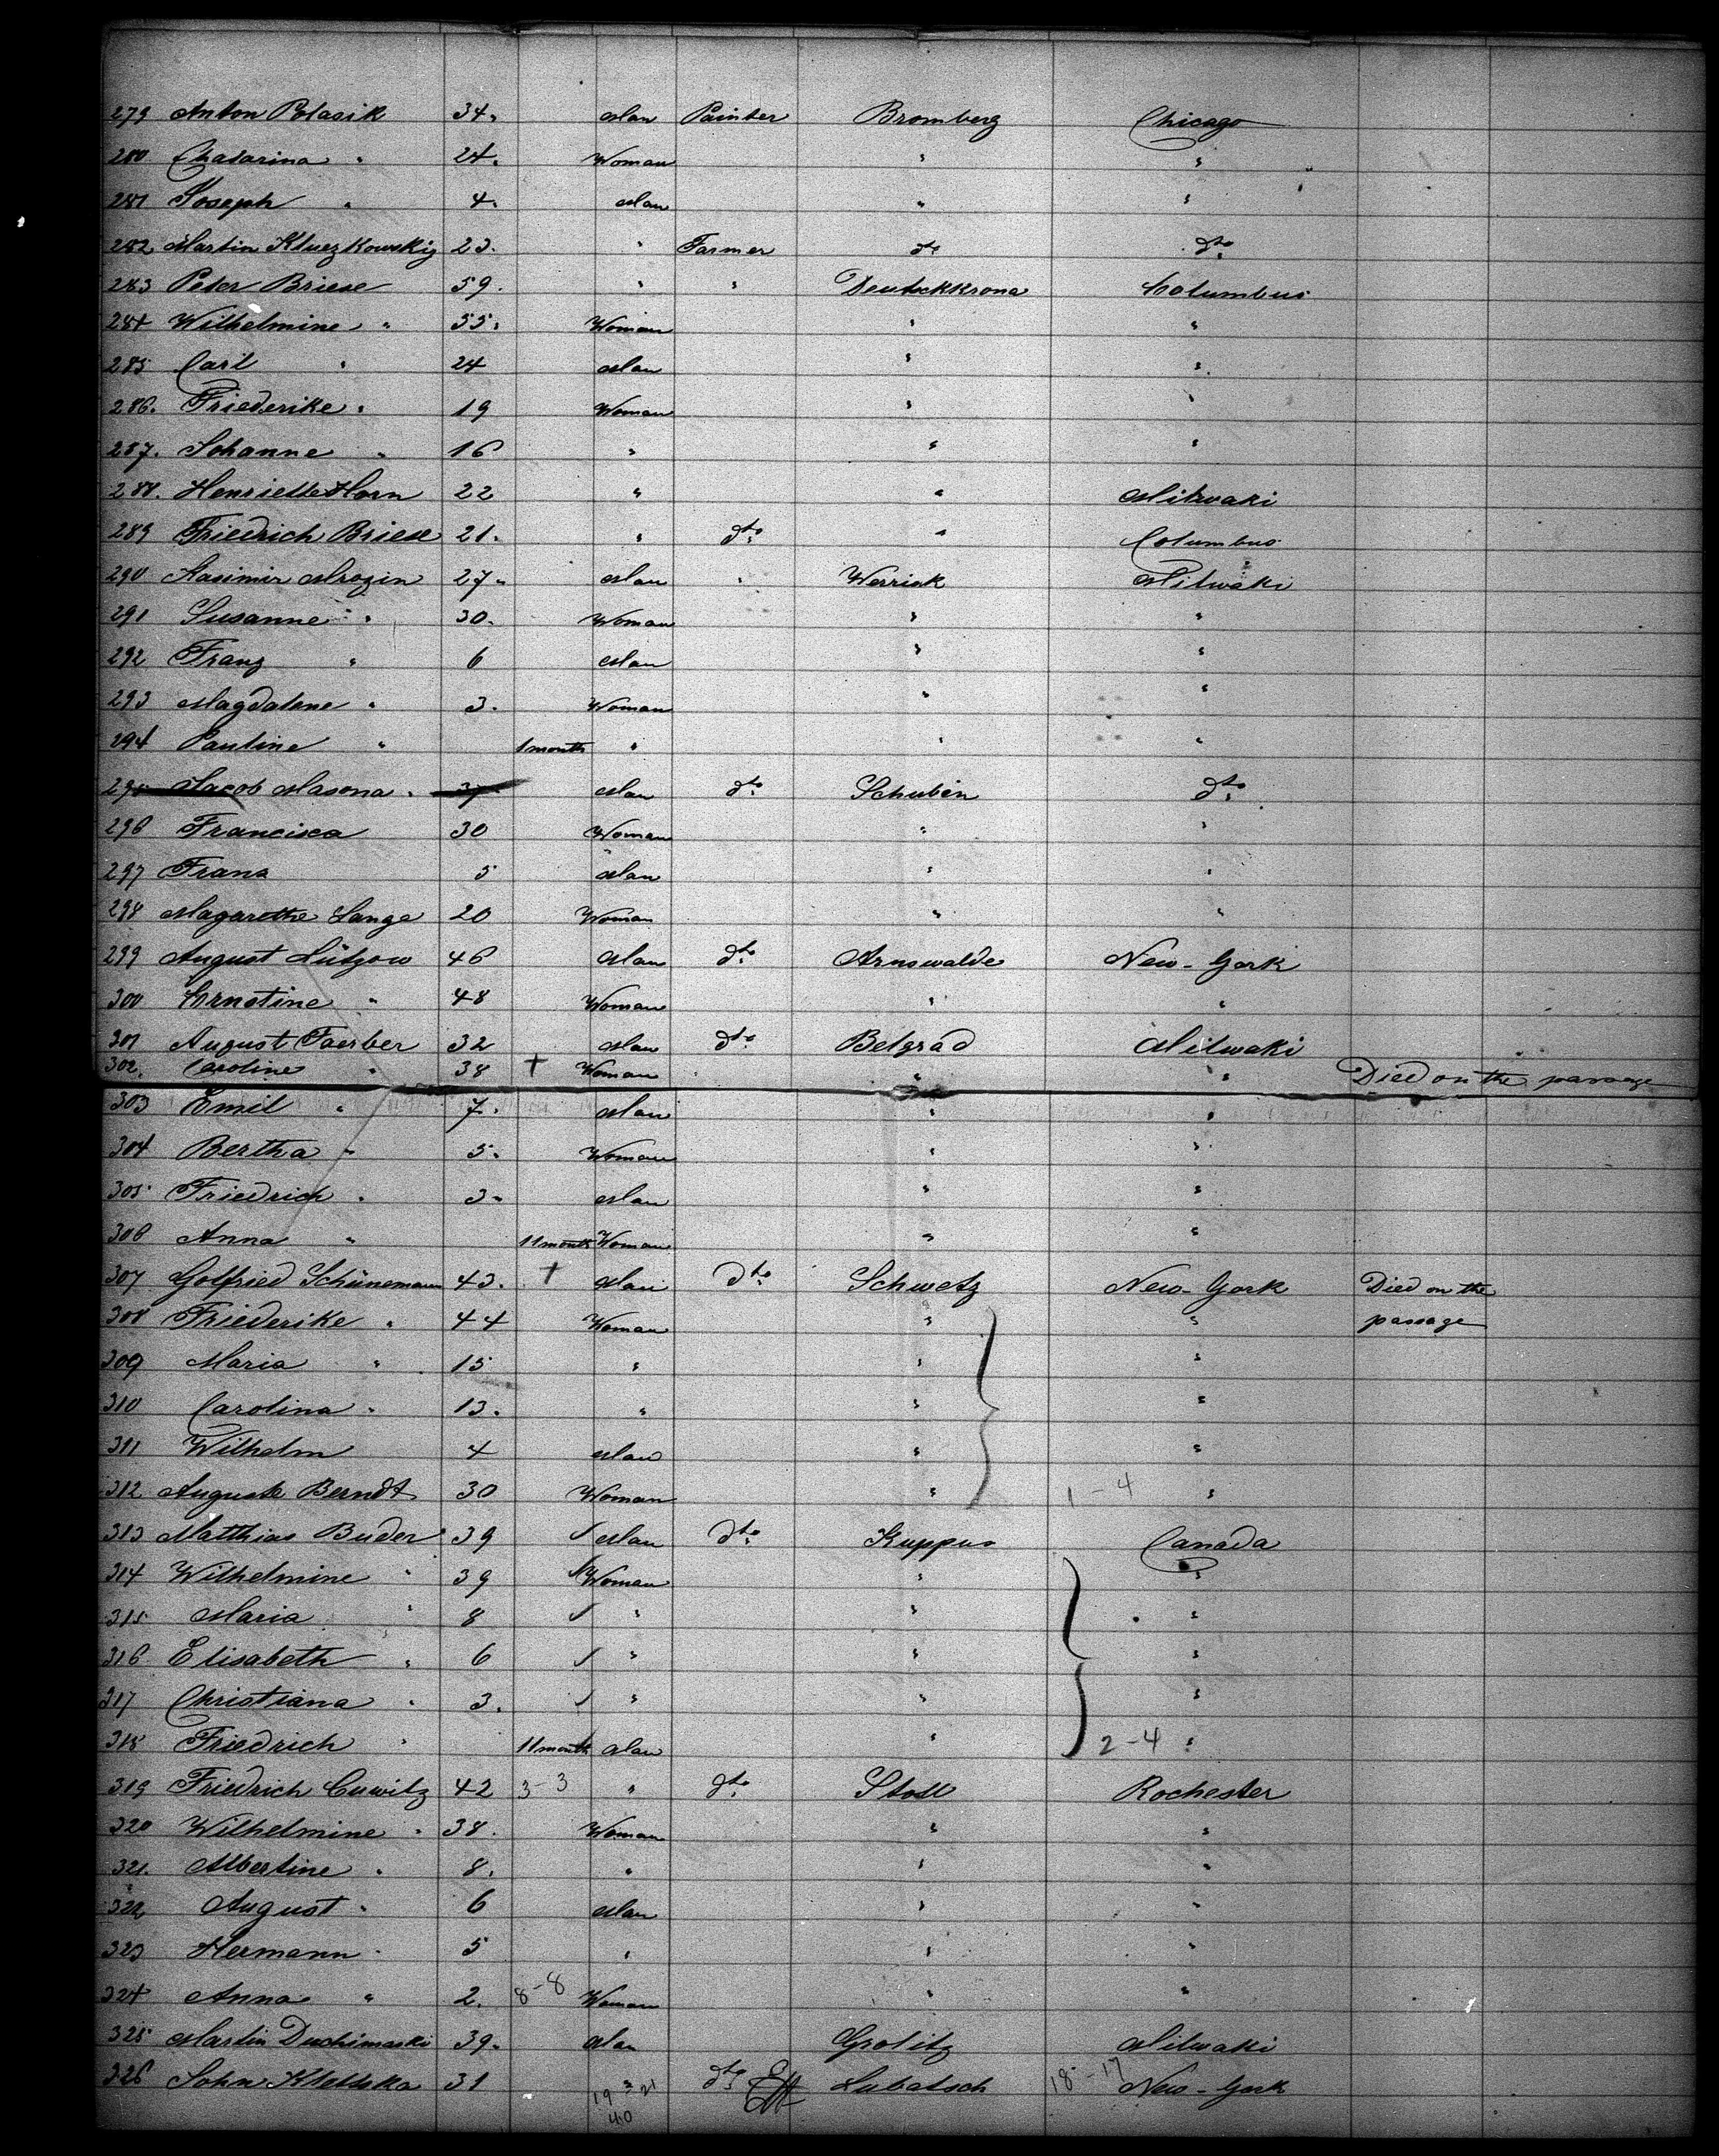 279 Anton Polasik 34. Man Painter Bromberg Chicago
280 Chatarina " 24. Woman " "
281 Joseph " 4. Man " "
282 Martin Kluczkowskiy 23. " Farmer dto dto
283 Peter Briese 59. " " Deutschkrona Columbus
284 Wilhelmine " 55. Woman " "
285 Carl " 24 Man " "
286. Friederike " 19 Woman " "
287. Johanne " 16 " " "
288. Henriette Horn 22 " " Milwaki
289 Friedrich Briese 21. " dto " Columbus
290 Kasimir Mrozin 27. Man " Werrick Milwaki
291 Susanne " 30. Woman " "
292 Franz " 6 Man " "
293 Magdalene " 3. Woman " "
294 Pauline " 1 month " " "
295 Jacob Masona " 37 Man dto Schubin dto
296 Francisca 30 Woman " "
297 Frans 5 Man " "
298 Magarethe Lange 20 Woman " "
299 August Lützow 46 Man dto Arnswalde New-York
300 Ernstine " 48 Woman " "
301 August Faerber 32 Man dto Belgrad Milwaki
302. Caroline " 38 + Woman " " Died on the passage
303 Emil " 7. Man " "
304 Bertha " 5. Woman " "
305 Friedrich " 3. Man " "
306 Anna " 11 month Woman " "
307 Gotfried Schünemann 43. + Man dto Schwetz New-York Died on the
308 Friederike " 44 Woman " " passage
309 Maria " 15 " " "
310 Carolina " 13. " " "
311 Wilhelm 4 Man " "
312 Auguste Berndt 30 Woman " 1-4 "
313 Matthias Buder 39 Man dto Kuppus Canada
314 Wilhelmine " 39 Woman " "
315 Maria " 8 " " "
316 Elisabeth " 6 " " "
317 Christiana " 3. " " "
318 Friedrich " 11 month Man " 2-4 "
319 Friedrich Cuwitz 42 3-3 " dto Rochester
320 Wilhelmine " 38. Woman " "
321. Albertine " 8. " " "
322 August " 6 Man " "
323 Hermann " 5 " " "
324 Anna " 2. 8-8 Woman " "
325 Martin Duchimaski 39. Man Grolitz Milwaki
326 John Klettka 31 dto Lubatsch 18-17 New-York
19 3 21
40